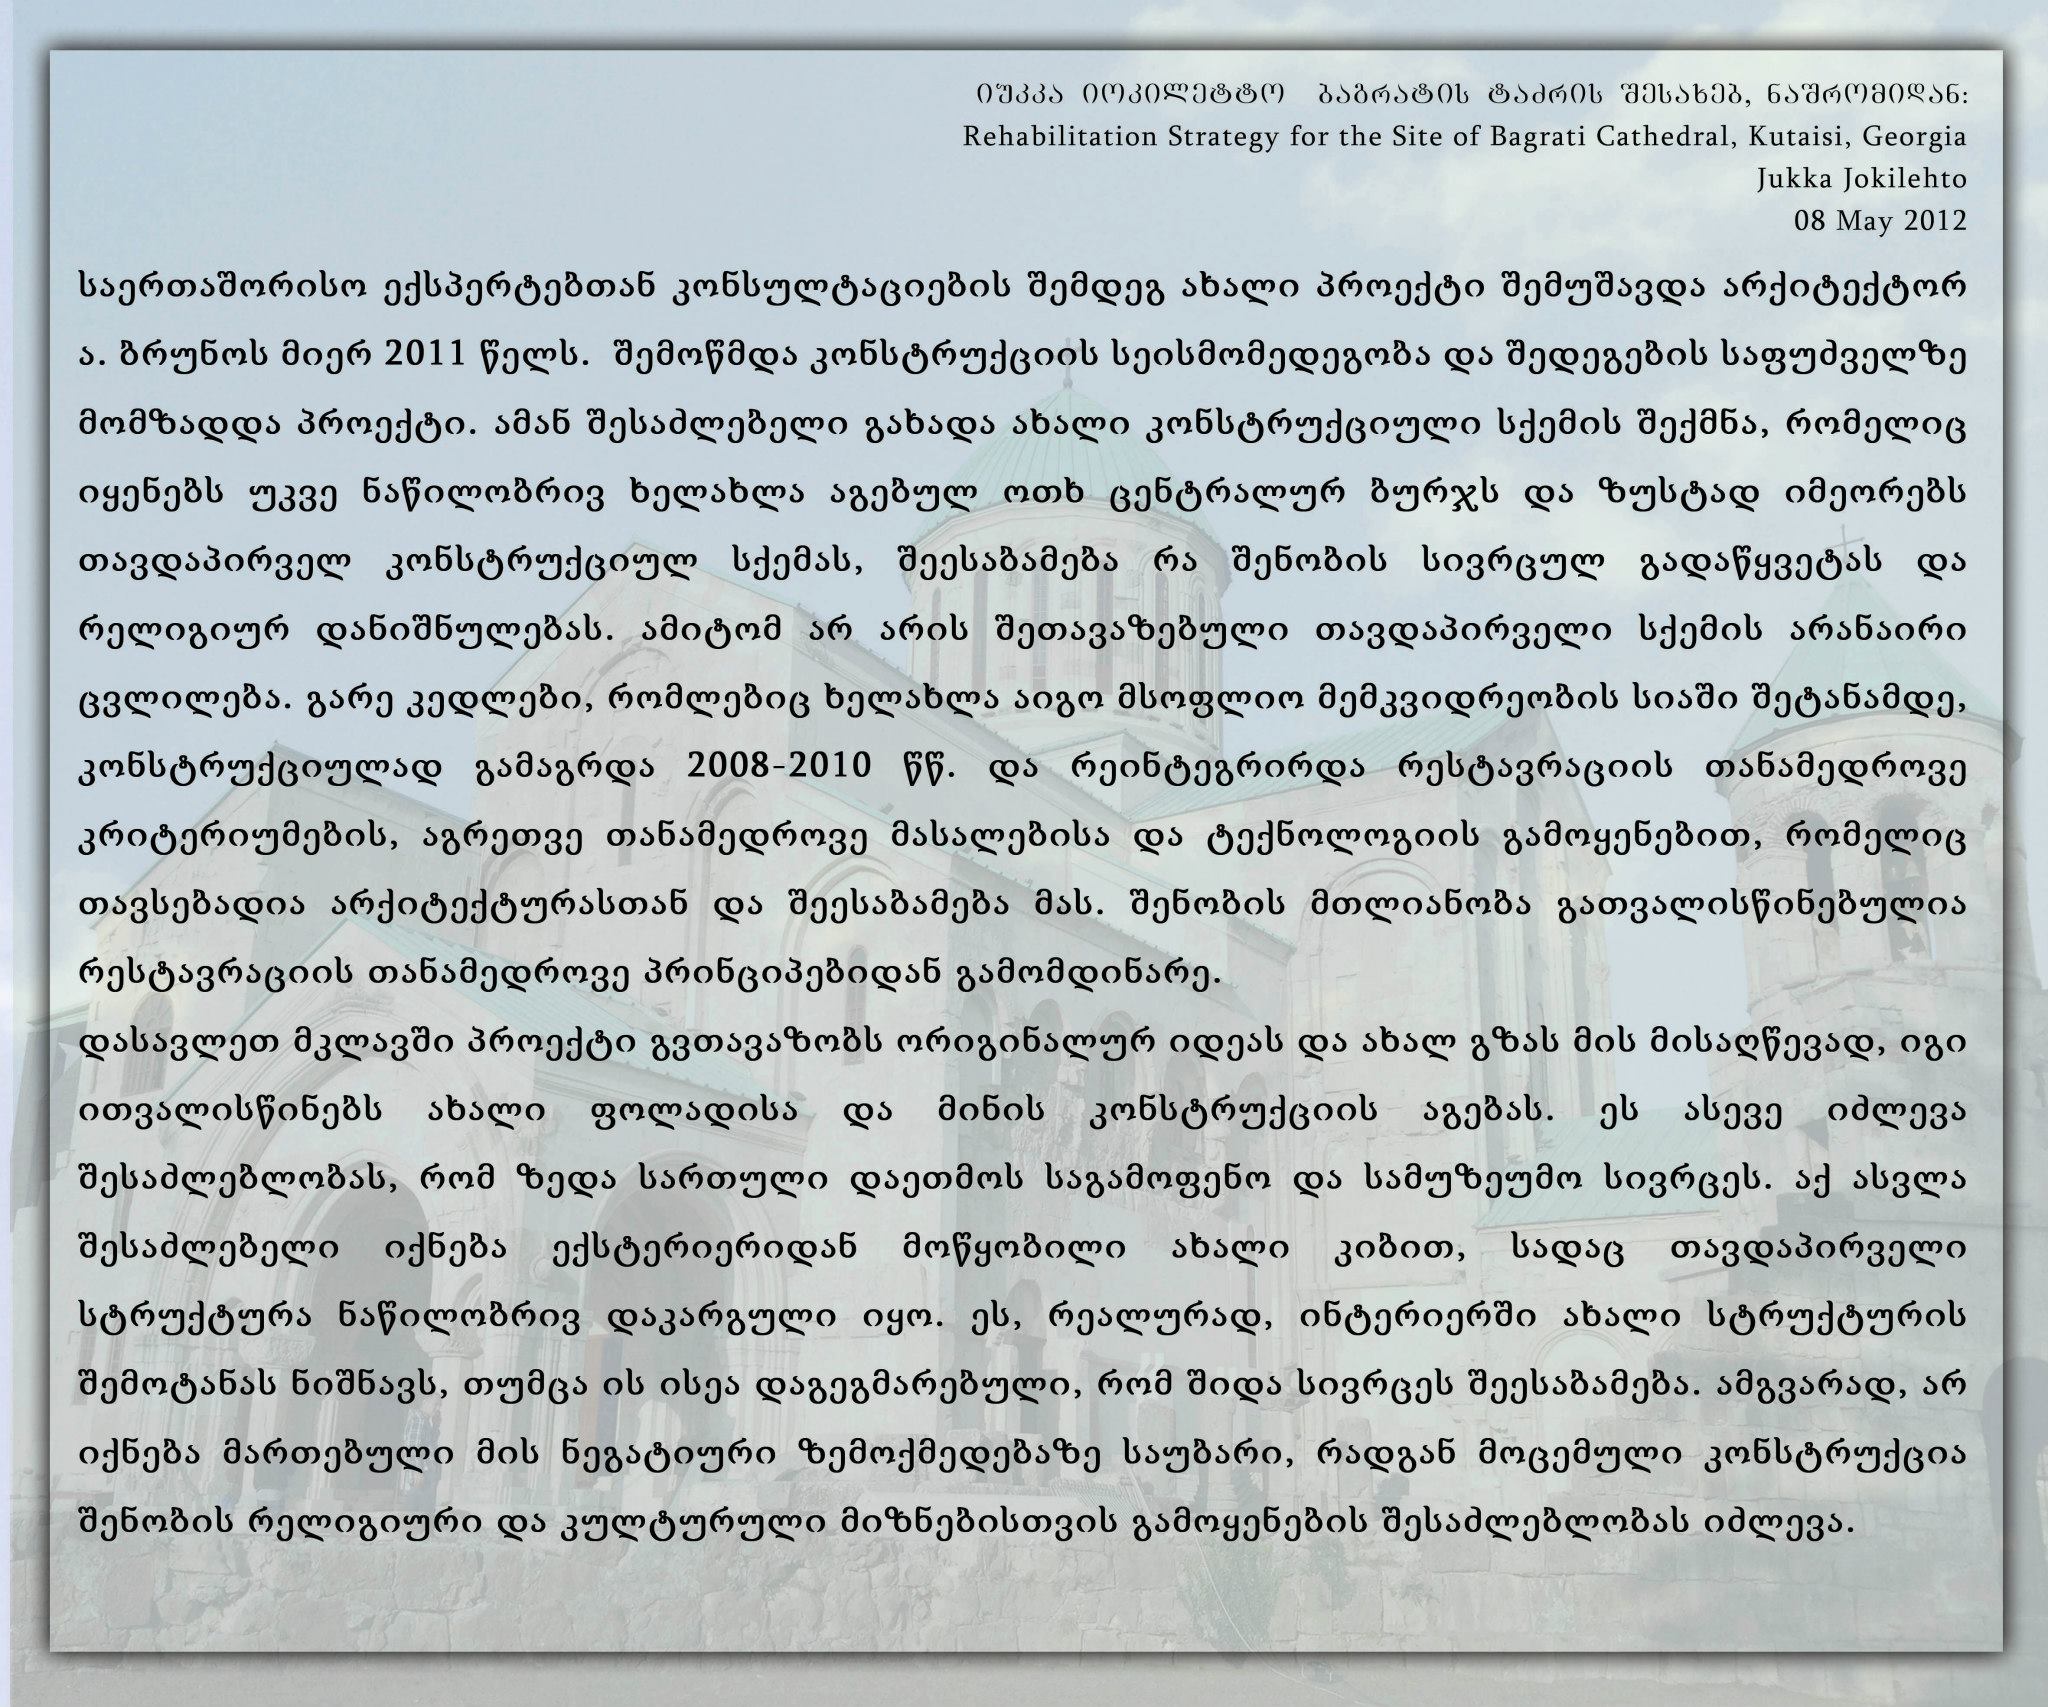 იუკკა იოკილეტტო ბაგრატის ტაძრის შესახებ, ნაშრომიდან:
Rehabilitation Strategy for the Site of Bagrati Cathedral, Kutaisi, Georgia
Jukka Jokilehto
08 May 2012
საერთაშორისო ექსპერტებთან კონსულტაციების შემდეგ ახალი პროექტი შემუშავდა არქიტექტორ
ა. ბრუნოს მიერ 2011 წელს. შემოწმდა კონსტრუქციის სეისმომედეგობა და შედეგების საფუძველზე
მომზადდა პროექტი. ამან შესაძლებელი გახადა ახალი კონსტრუქციული სქემის შექმნა, რომელიც
იყენებს უკვე ნაწილობრივ ხელახლა აგებულ ოთხ ცენტრალურ ბურჯს და ზუსტად იმეორებს
თავდაპირველ კონსტრუქციულ სქემას, შეესაბამება რა შენობის სივრცულ გადაწყვეტას და
რელიგიურ დანიშნულებას. ამიტომ არ არის შეთავაზებული თავდაპირველი სქემის არანაირი
ცვლილება. გარე კედლები, რომლებიც ხელახლა აიგო მსოფლიო მემკვიდრეობის სიაში შეტანამდე,
კონსტრუქციულად გამაგრდა 2008-2010 წწ. და რეინტეგრირდა რესტავრაციის თანამედროვე
კრიტერიუმების, აგრეთვე თანამედროვე მასალებისა და ტექნოლოგიის გამოყენებით, რომელიც
თავსებადია არქიტექტურასთან და შეესაბამება მას. შენობის მთლიანობა გათვალისწინებულია
რესტავრაციის თანამედროვე პრინციპებიდან გამომდინარე.
დასავლეთ მკლავში პროექტი გვთავაზობს ორიგინალურ იდეას და ახალ გზას მის მისაღწევად, იგი
ითვალისწინებს ახალი ფოლადისა და მინის კონსტრუქციის აგებას. ეს ასევე იძლევა
შესაძლებლობას, რომ ზედა სართული დაეთმოს საგამოფენო და სამუზეუმო სივრცეს. აქ ასვლა
შესაძლებელი იქნება ექსტერიერიდან მოწყობილი ახალი კიბით, სადაც თავდაპირველი
სტრუქტურა ნაწილობრივ დაკარგული იყო. ეს, რეალურად, ინტერიერში ახალი სტრუქტურის
შემოტანას ნიშნავს, თუმცა ის ისეა დაგეგმარებული, რომ შიდა სივრცეს შეესაბამება. ამგვარად, არ
იქნება მართებული მის ნეგატიური ზემოქმედებაზე საუბარი, რადგან მოცემული კონსტრუქცია
შენობის რელიგიური და კულტურული მიზნებისთვის გამოყენების შესაძლებლობას იძლევა.